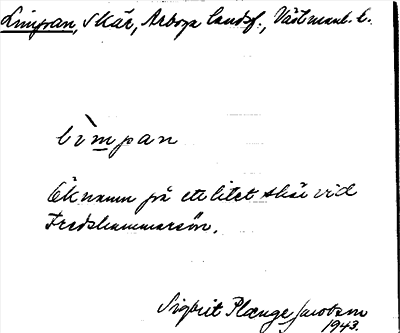 Limpan, skär, Arboga landsf., Västmanl. l.
lìmpan
Öknamn på ett litet skär vid
Fredshammarsön.
Sigbrit Plænge Jacobson
1943.